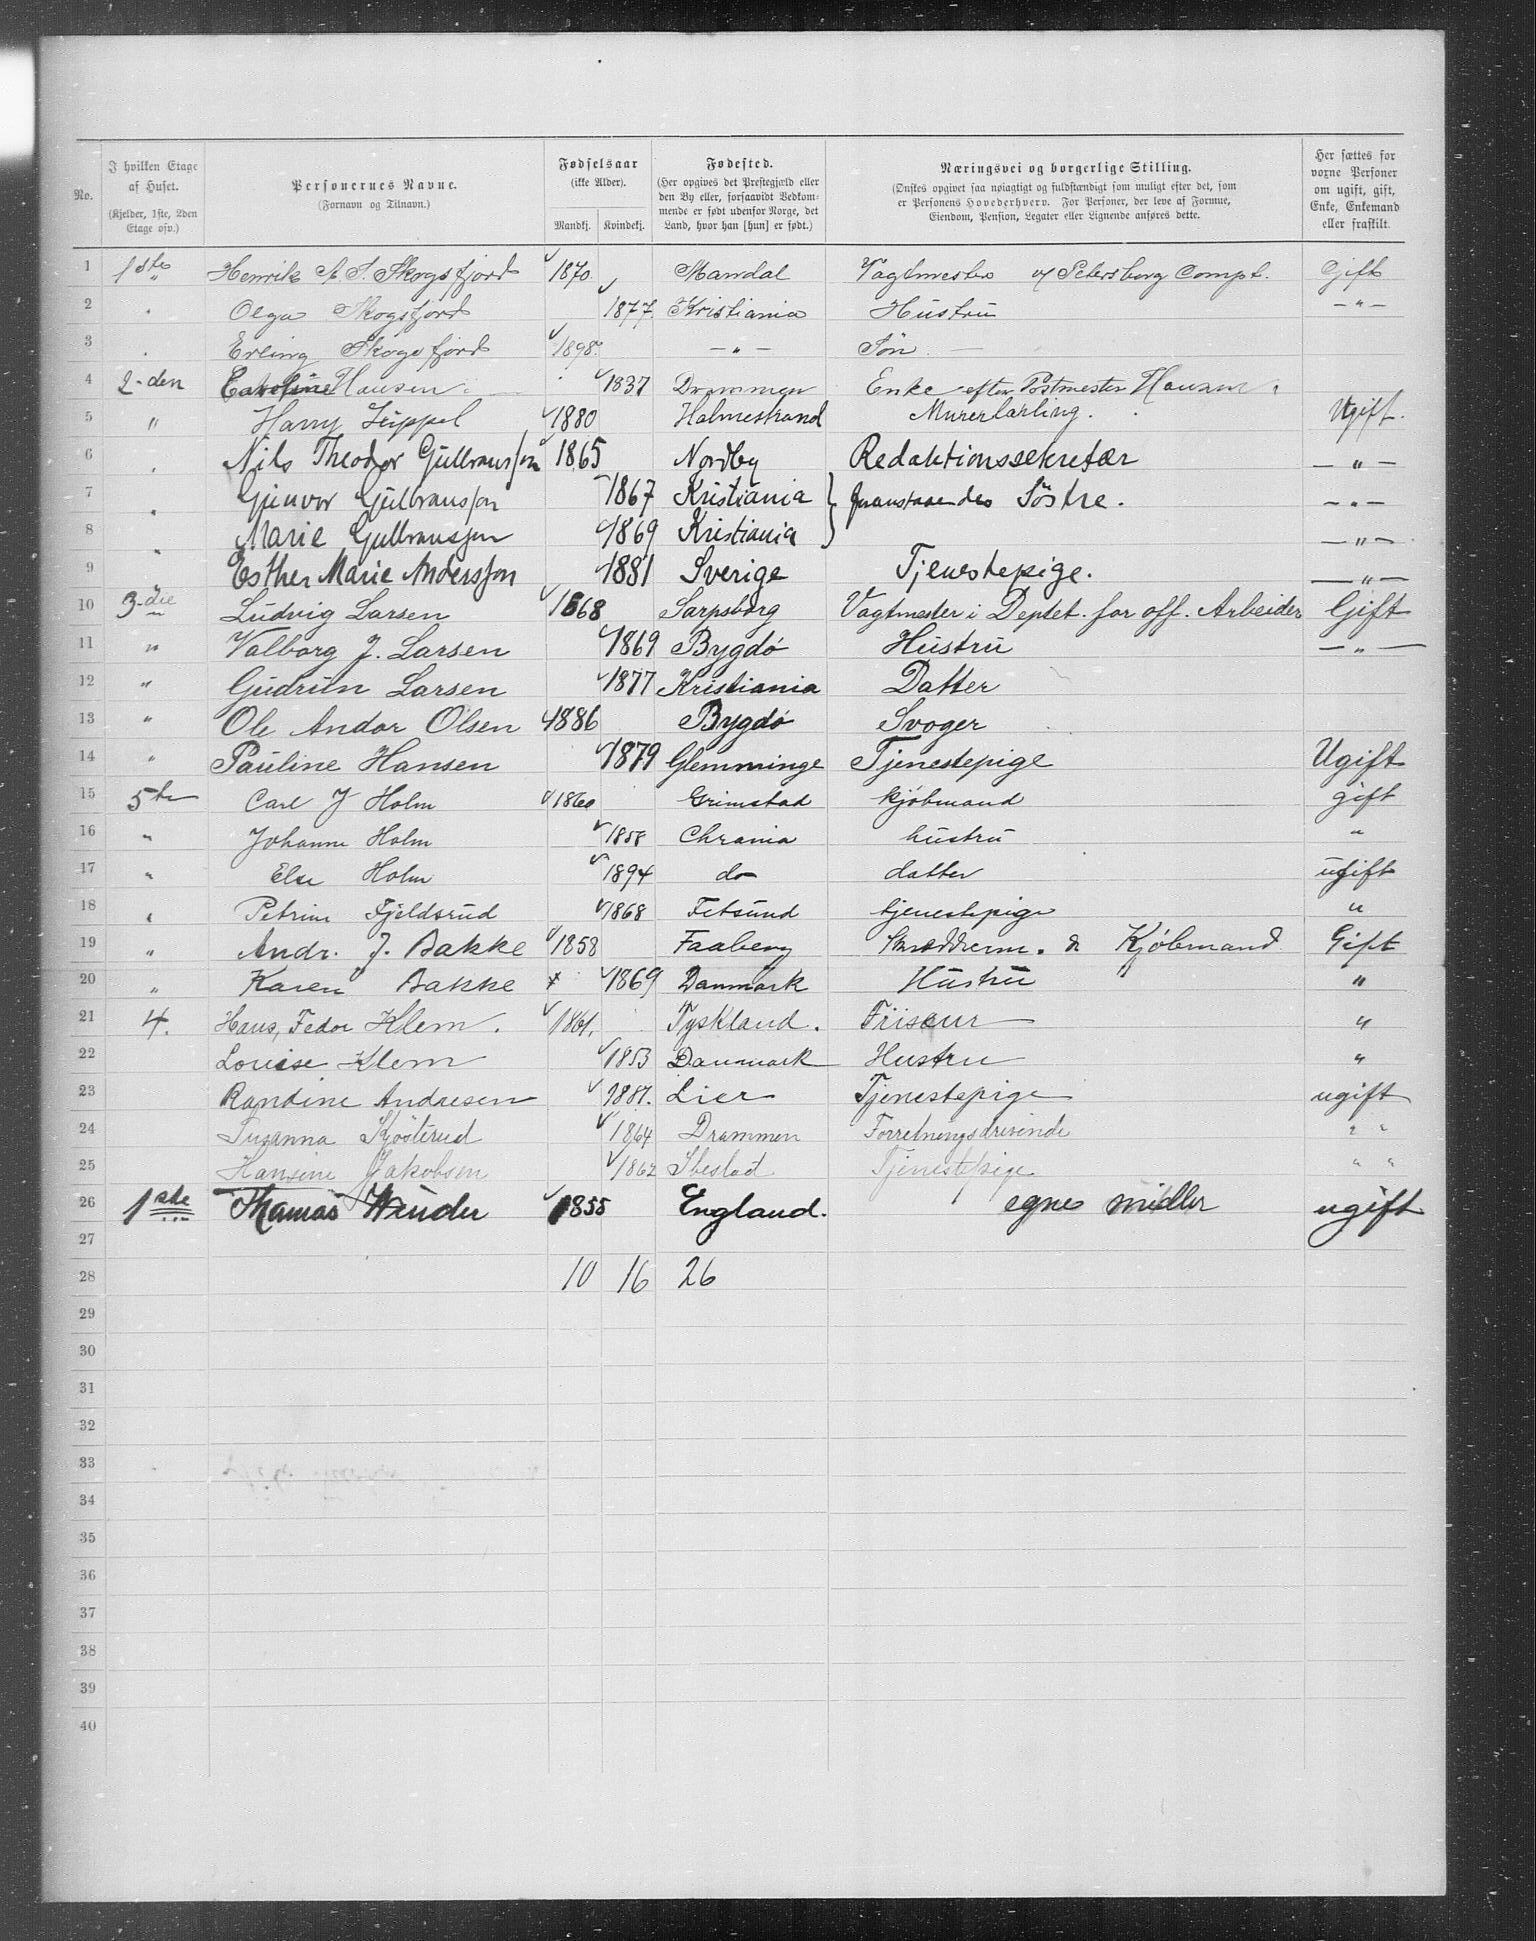 No. | I hvilken Etage af Huset. (Kjelder, 1ste, 2den Etage osv.) | Personernes Navne. (Fornavn og Tilnavn.) | Fødselsaar (ikke Alder). Mandkj. Kvindekj. | Fødested. (Her opgives det Prestegjæld eller den By eller, forsaavidt Vedkommende er født udenfor Norge, det Land, hvor han [hun] er født.) | Næringsvei og borgerlige Stilling. (Ønskes opgivet saa nøiagtigt og fuldstændigt som muligt efter det, som er Personens Hovederhverv. For Personer, der leve af Formue, Eiendom, Pension, Legater eller Lignende anføres dette.) | Her sættes for voxne Personer om ugift, gift, Enke, Enkemand eller fraskilt.
1 1ste Henrik A. S. Skogsfjord 1870 Mandal Vagtmester v/ Petersborg Compt. Gift
2 " Olga Skogsfjord 1877 Kristiania Hustru — " —
3 " Erling Skogsfjord 1898 — " — Søn
4 2-den Caroline Hansen 1837 Drammen Enke efter Postmester Hansen
5 " Harry Zeppel 1880 Holmestrand Murerlærling. Ugift.
6 " Nils Theodor Gulbransson 1865 Nordby Redaktionssekretær — " —
7 " Gunvor Gulbransson 1867 Kristiania } foranstaaendes Söstre. — " —
8 " Marie Gulbransson 1869 Kristiania } — " —
9 " Esther Marie Andersson 1881 Sverige Tjenestepige. — " —
10 3-die Ludvig Larsen 1868 Sarpsborg Vagtmester i Deptet. for off. Arbeider Gift
11 " Valborg J. Larsen 1869 Bygdö Hustru — " —
12 " Gudrun Larsen 1877 Kristiania Datter
13 " Ole Andor Olsen 1886 Bygdö Svoger
14 " Pauline Hansen 1879 Glemminge Tjenestepige Ugift
15 5te Carl J Holm 1860 Grimstad kjøbmand gift
16 " Johanne Holm 1858 Chrania hustru "
17 " Else Holm 1894 do datter ugift
18 " Petrine Fjeldsrud 1868 Fetsund tjenestepige "
19 " Andr. J. Bakke 1858 Faaberg Skrædderm. & Kjøbmand Gift
20 " Karen Bakke x 1869 Danmark Hustru "
21 4. Hans, Fedor Klem. 1861. Tyskland. Friseur "
22 Louise Klem 1853 Danmark Hustru "
23 Randine Andresen 1881. Lier Tjenestepige ugift
24 Susanna Kjösterud 1864 Drammen Forretningsdrivende " "
25 Hansine Jakobsen 1862 Ibestad Tjenestepige " "
26 1ste Thomas Winder 1855 England. egne midler ugift
27
28 10 16 26
29
30
31
32
33
34
35
36
37
38
39
40